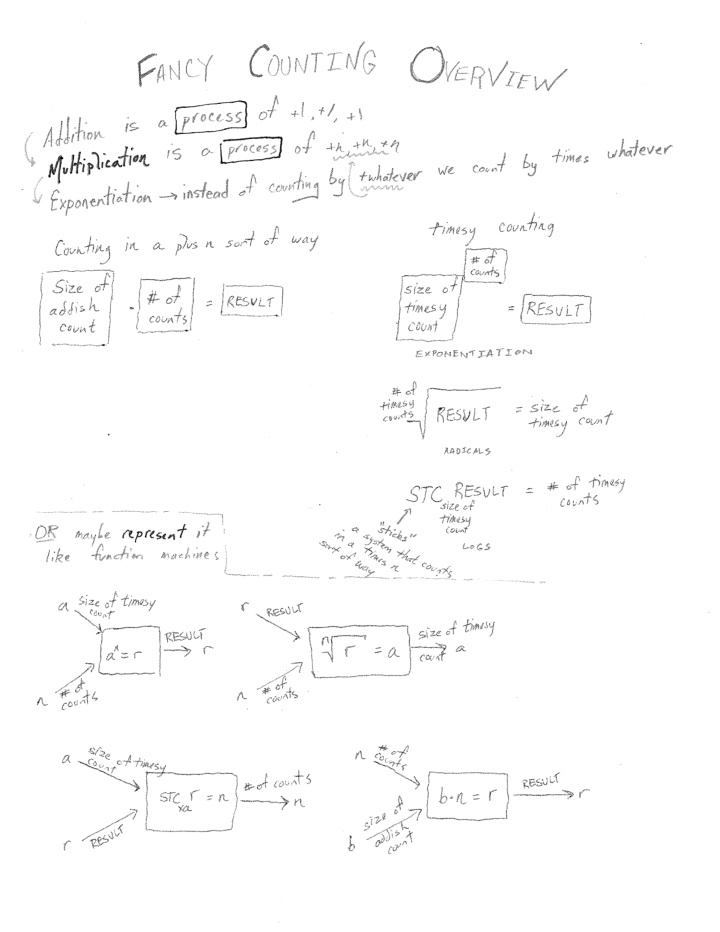 FANCY COUNTING OVERVIEW
Addition is a process of +1, +1, +1
Multiplication is a process of +n, +n, +n
Exponentiation → instead of counting by +whatever we count by times whatever
Counting in a plus n sort of way
Size of addish count · # of counts = RESULT
timesy counting
size of timesy count # of counts = RESULT
EXPONENTIATION
# of timesy counts √ RESULT = size of timesy count
RADICALS
STC RESULT = # of timesy counts
size of timesy count
LOGS
"sticks"
a system that counts
in a times n
sort of way
OR maybe represent it
like function machines
a size of timesy count
n # of counts
aⁿ = r
RESULT → r
r RESULT
n # of counts
ⁿ√r = a
size of timesy count a
a size of timesy count
r RESULT
STC r = n
xa
# of counts → n
n # of counts
b size of addish count
b·n = r
RESULT → r